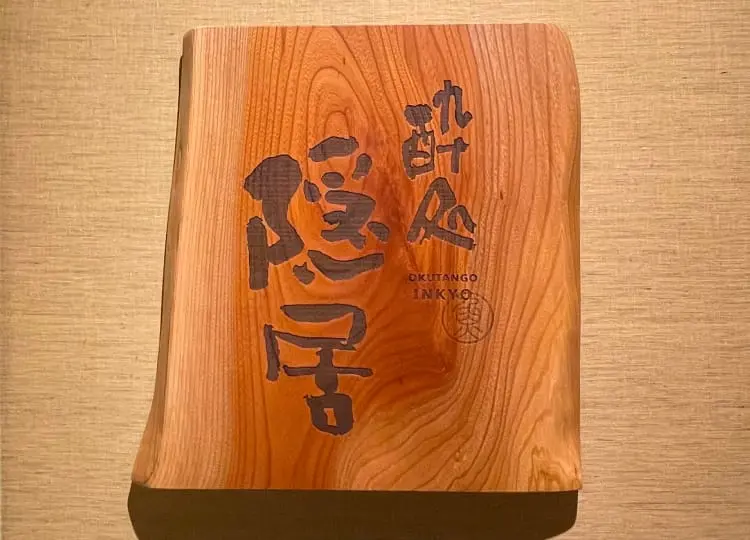 酔処
隠居
OKUTANGO
INKYO